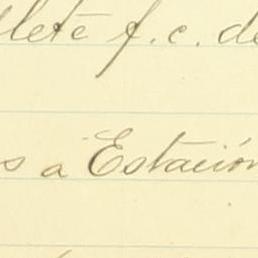 llete f.c. de
s a Estación